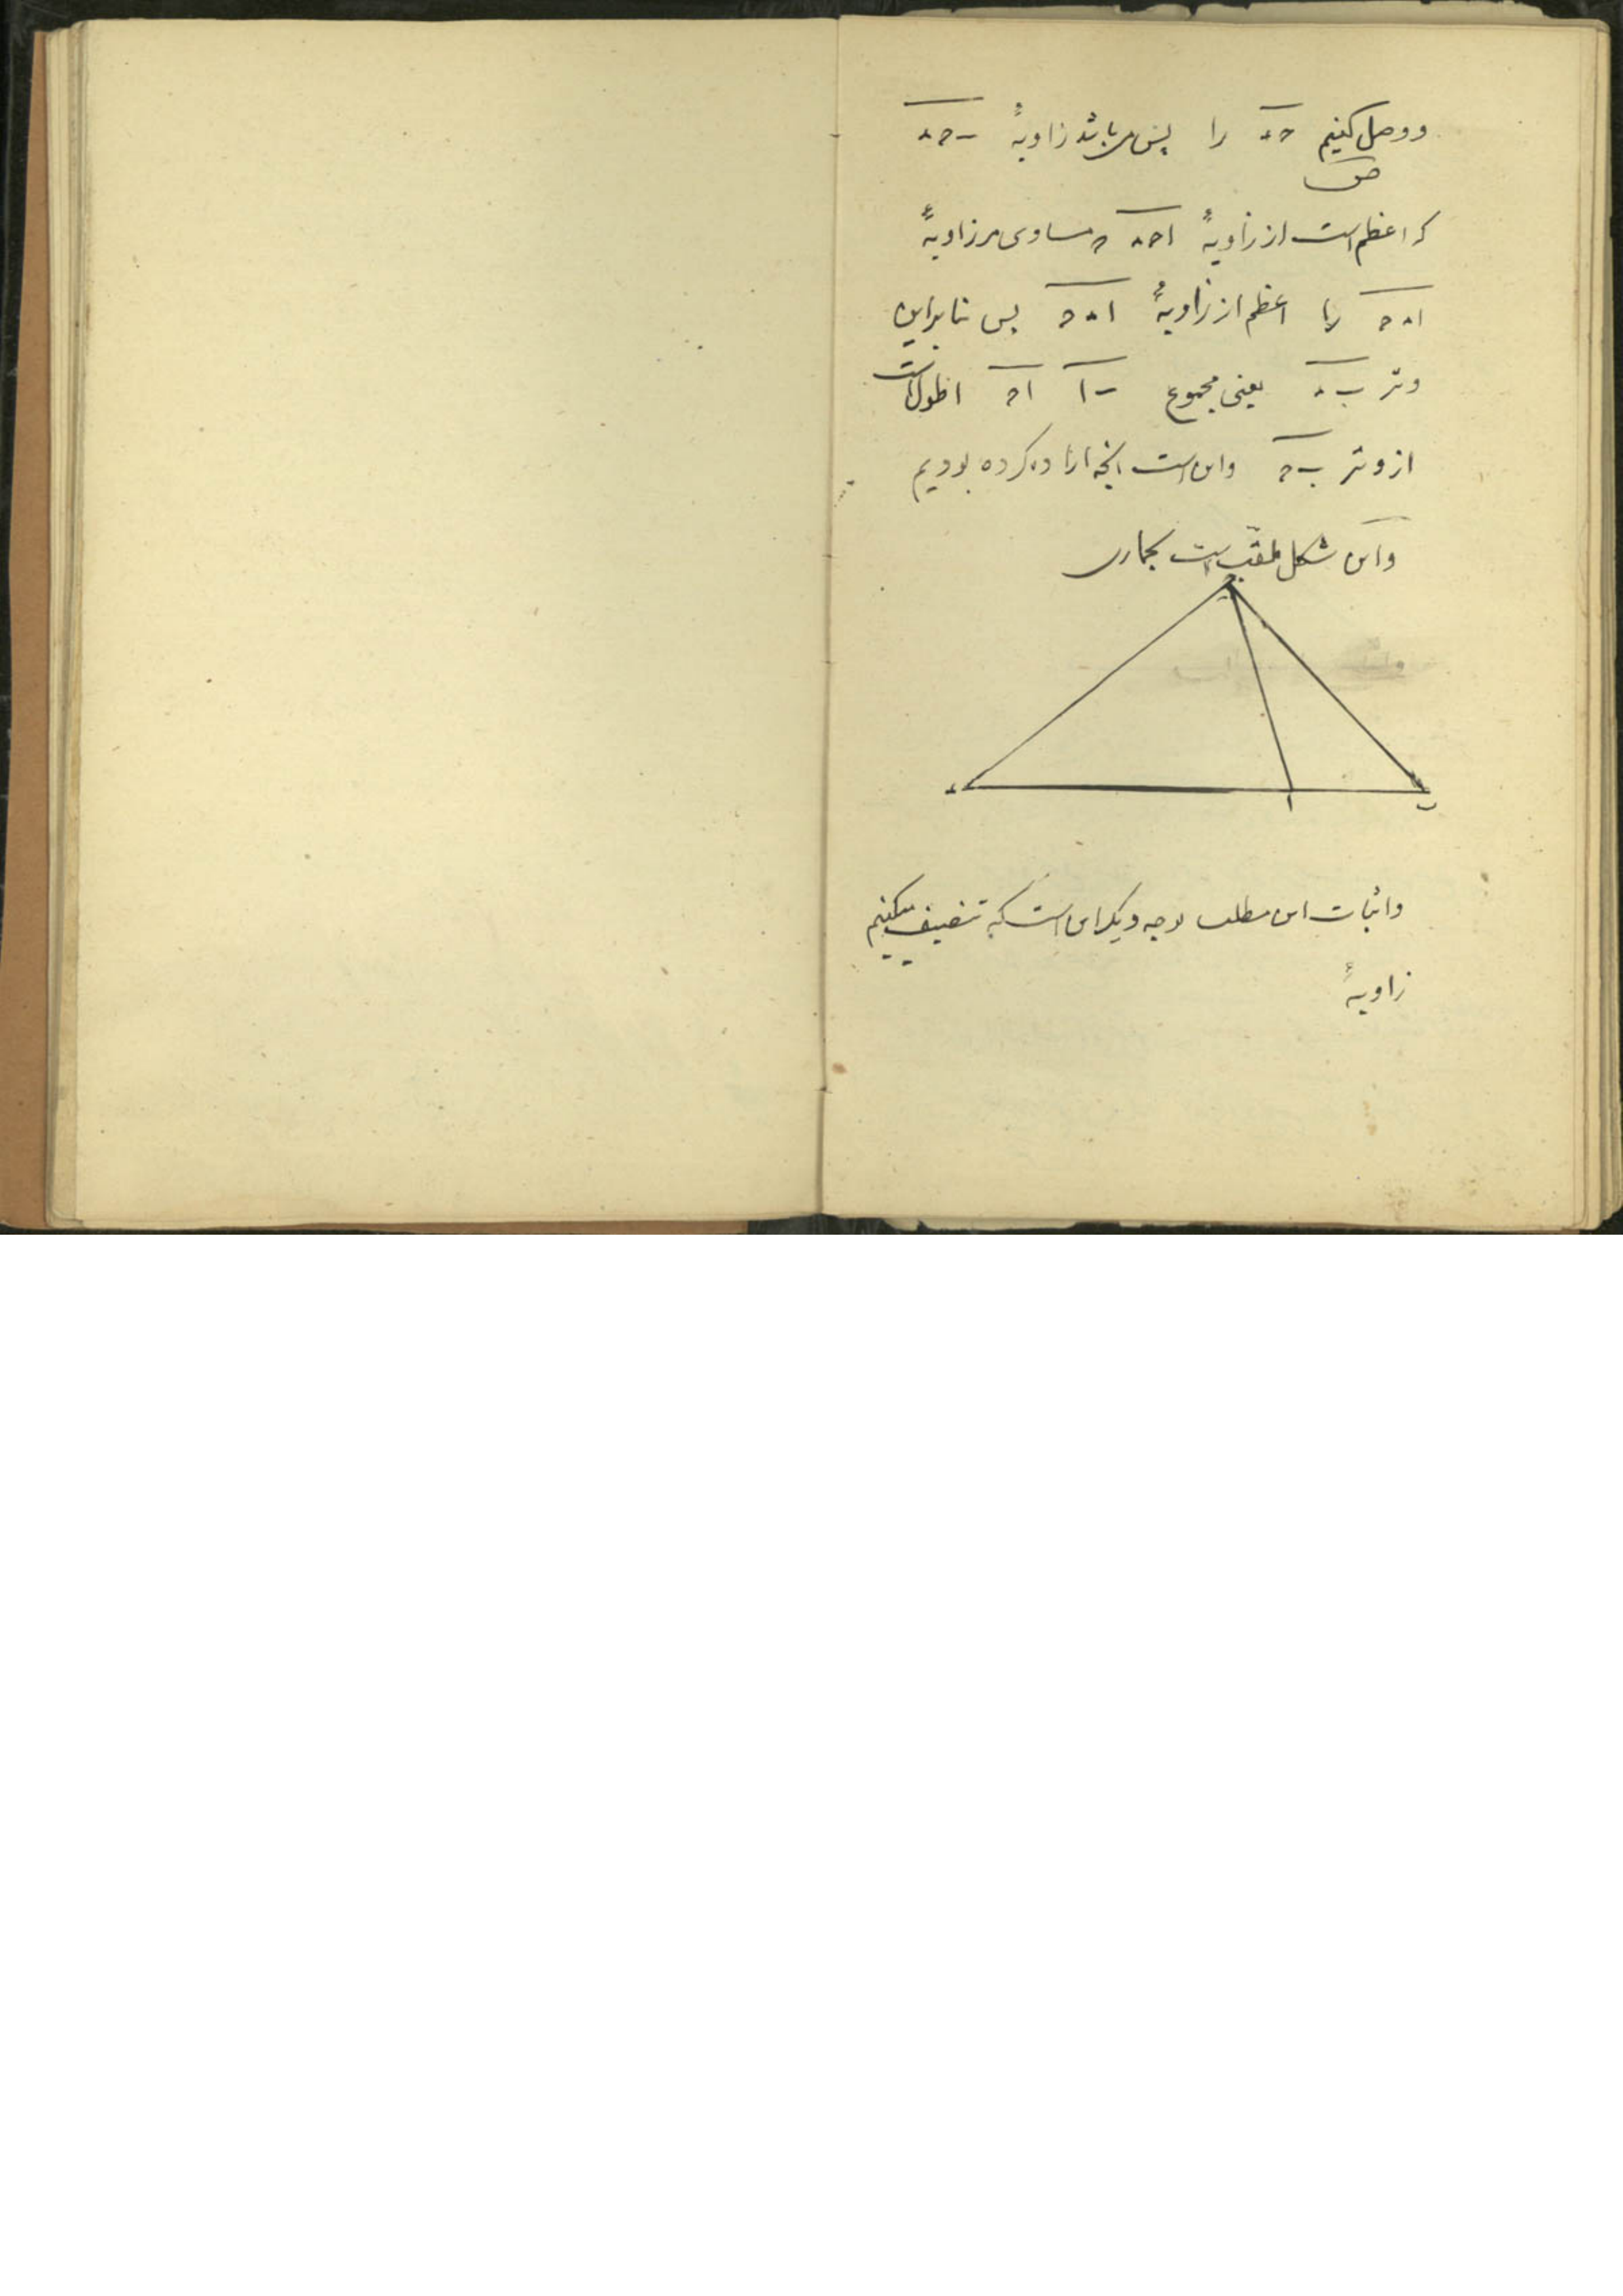 ووصل کنیم حد را پس میباشد زاویهٔ بحد
ص
که اعظم است از زاویهٔ احد ح مساوی مر زاویهٔ
ادح را اعظم از زاویهٔ ادح پس بنابراین
وتر بد یعنی مجموع با اح اطول است
از وتر بح واین است آنچه اراده کرده بودیم
واین شکل ملقب است بحماری
ح
د ا ب
واثبات این مطلب بوجه دیگر این است که تنصیف میکنیم
زاویهٔ